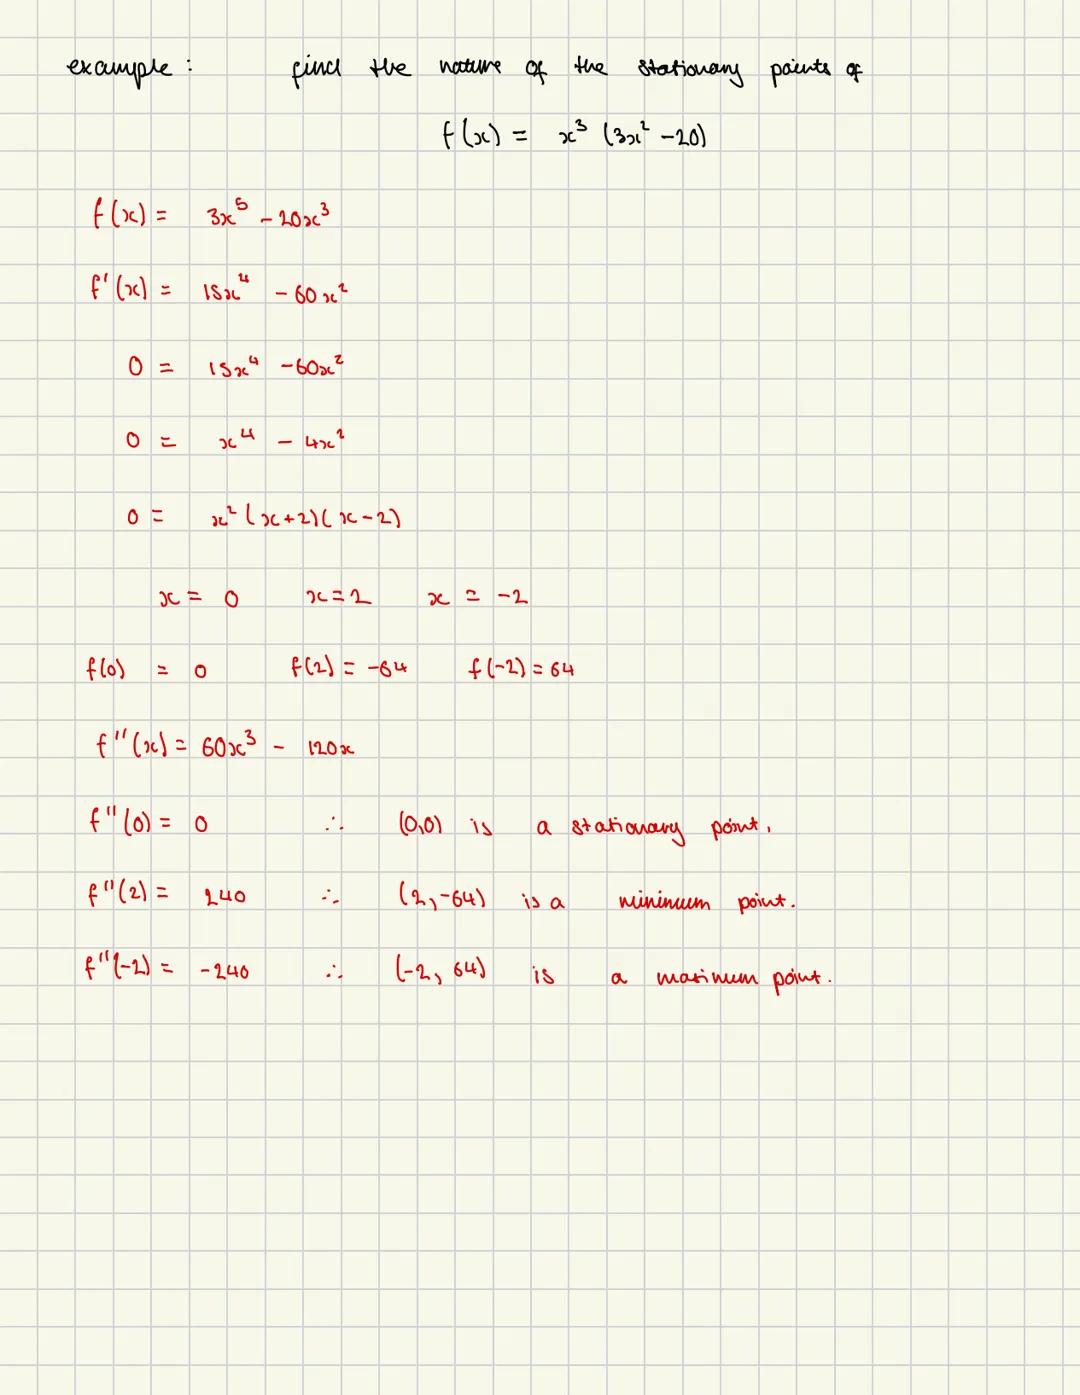 example : find the nature of the stationary points of
f(x) = x³ (3x² - 20)
f(x) = 3x⁵ - 20x³
f'(x) = 15x⁴ - 60x²
0 = 15x⁴ - 60x²
0 = x⁴ - 4x²
0 = x² (x+2)(x-2)
x = 0 x = 2 x = -2
f(0) = 0 f(2) = -64 f(-2) = 64
f''(x) = 60x³ - 120x
f''(0) = 0 ∴ (0,0) is a stationary point.
f''(2) = 240 ∴ (2,-64) is a minimum point.
f''(-2) = -240 ∴ (-2, 64) is a maximum point.